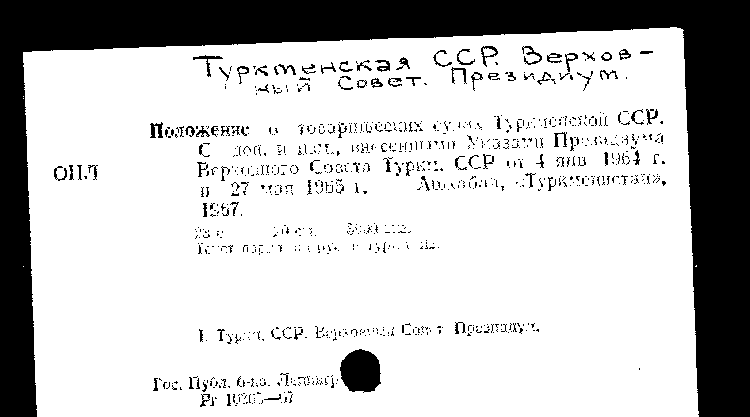 Туркменская ССР. Верхов-
ный Совет. Президиум.
Положение о товарищеских судах Туркменской ССР.
С доп. и изм., внесенными Указами Президиума
ОНЛ
Верховного Совета Туркм. ССР от 4 янв 1964 г.
и 27 мая 1965 г. Ашхабад, «Туркменистан»,
1967.
Текст парал. на рус. и туркм. яз.
I. Туркм. ССР. Верховный Совет Президиум.
Гос. Публ. б-ка. Ленингр
Рг